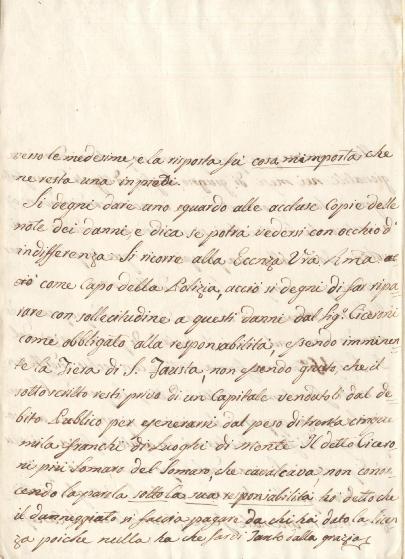 verso le medesime, e la risposta fu cosa m'importa, che
ne resta una in piedi.
Si degni dare uno sguardo alle accluse Copie delle
note dei danni, e dica se potrà vedersi con occhio d'
indifferenza. Si ricorre alla Eccnza Vra Rma ac
ciò come Capo della Polizia, acciò si degni di far ripa
rare con sollecitudine a questi danni dal Sigr Ciceroni
come obbligato alla responsabilità, essendo imminen
te la Fiera di S. Fausta, non essendo giusto, che il
sottoscritto resti privo di un Capitale vendutoli dal de
bito Publico per esenerarsi dal peso di trenta cinque
mila franchi di Luoghi di Monte. Il detto Cicero
ni più somaro del somaro, che cavalcava, non cono
scendo la parola sotto la sua responsabilità, ha detto che
il danneggiato si faccia pagare da chi ha dato la licen
za poiche nulla ha che farci. Tanto dalla grazia